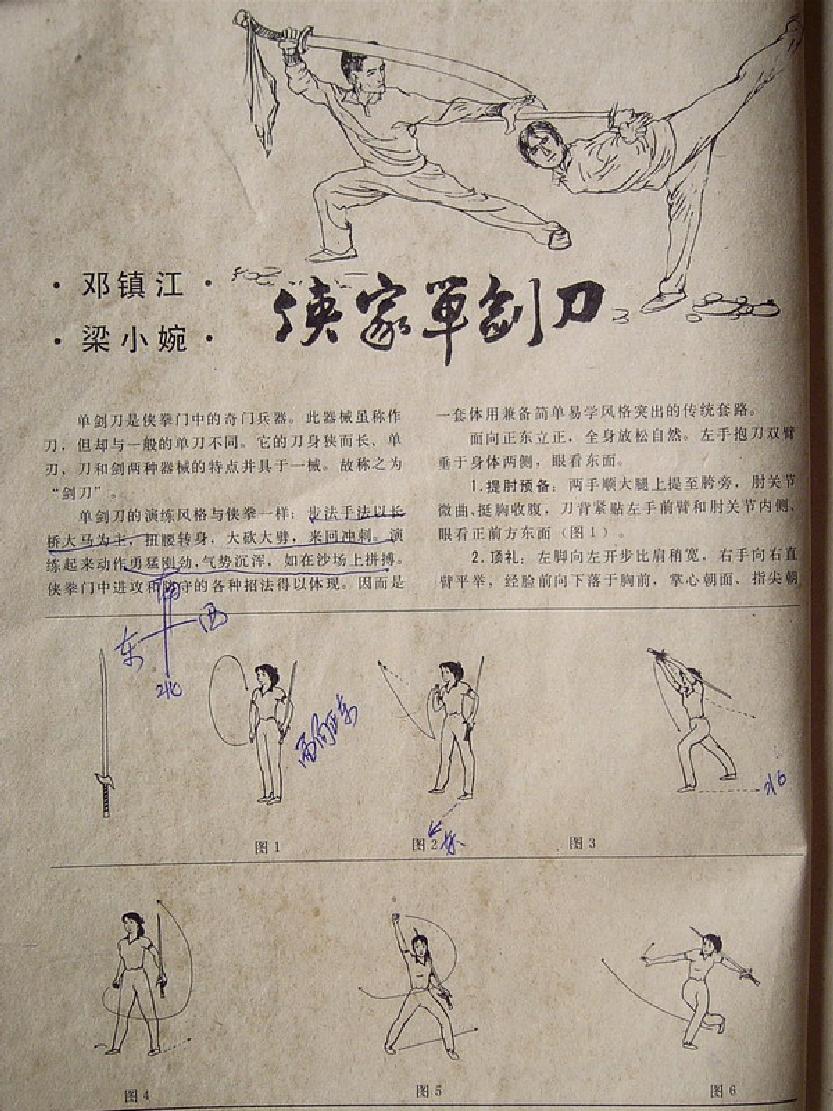 ·邓镇江·
·梁小婉·
侠家单剑刀
单剑刀是侠拳门中的奇门兵器。此器械虽称作
刀，但却与一般的单刀不同。它的刀身狭而长、单
刃，刀和剑两种器械的特点并具于一械。故称之为
“剑刀”。
单剑刀的演练风格与侠拳一样：步法手法以长
桥大马为主，扭腰转身，大砍大劈，来回冲刺。演
练起来动作勇猛刚劲，气势沉浑，如在沙场上拼搏。
侠拳门中进攻和防守的各种招法得以体现。因而是
一套体用兼备简单易学风格突出的传统套路。
面向正东立正，全身放松自然。左手抱刀双臂
垂于身体两侧，眼看东面。
1.提肘预备：两手顺大腿上提至胯旁，肘关节
微曲、挺胸收腹，刀背紧贴左手前臂和肘关节内侧、
眼看正前方东面（图1）。
2.顶礼：左脚向左开步比肩稍宽，右手向右直
臂平举，经脸前向下落于胸前，掌心朝面、指尖朝
南
东 西
北
面向正东
东
北
图1
图2
图3
图4
图5
图6